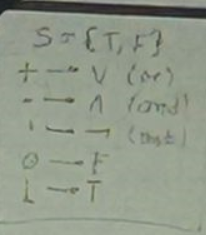 S = {T, F}
+ → ∨ (or)
· → ∧ (and)
' → ¬ (not)
0 → F
1 → T